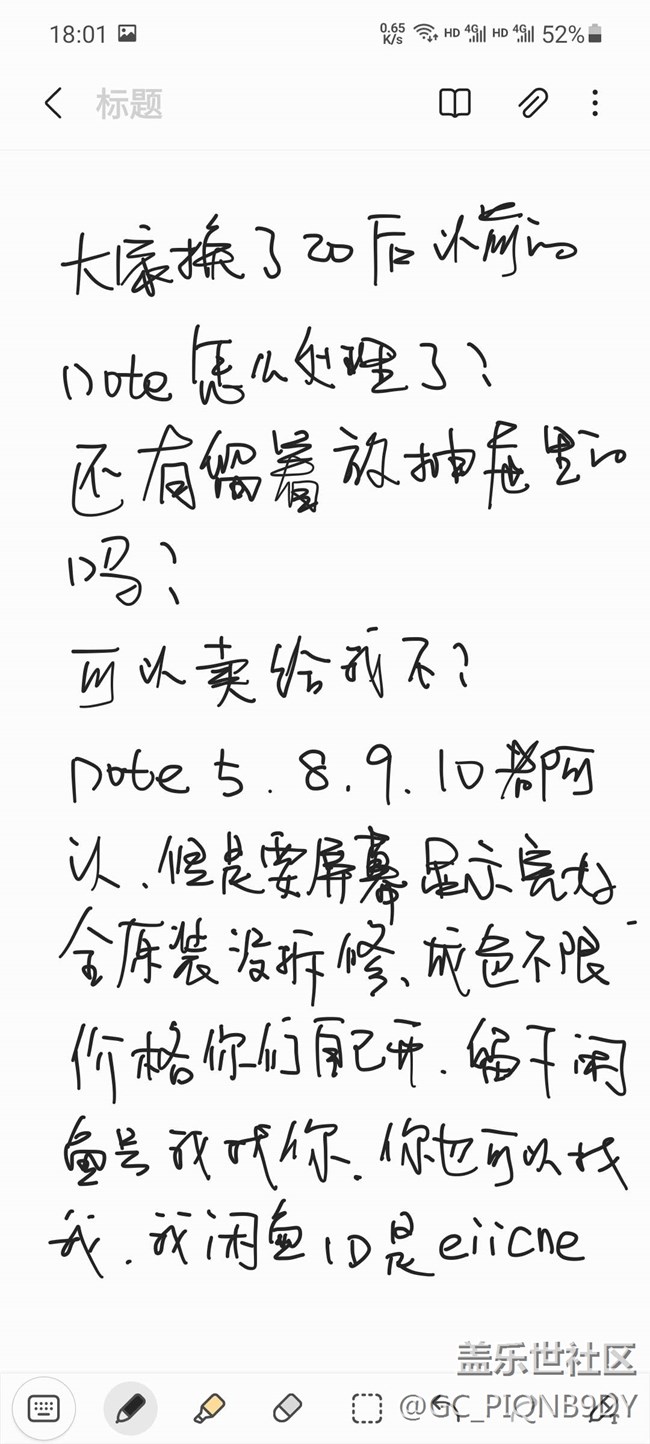 18:01 0.65 K/s HD 4G HD 4G 52%
标题
大家换了20后以前的
Note怎么处理了？
还有留着放抽屉里的
吗？
可以卖给我不？
Note 5.8.9.10都可
以.但是要屏幕显示完好
全原装没拆修、成色不限
价格你们自己开.留下闲
鱼号我找你.你也可以找
我.我闲鱼ID是eiicne
盖乐世社区
@GC_PIQNB9DY